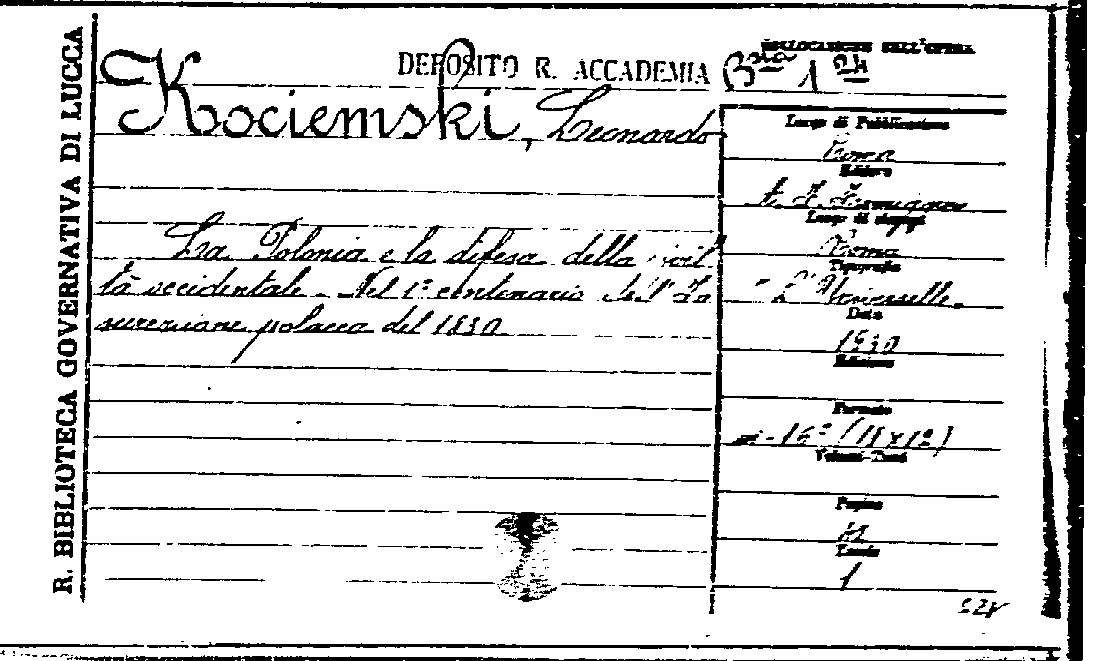 R. BIBLIOTECA GOVERNATIVA DI LUCCA
DEPOSITO R. ACCADEMIA
COLLOCAZIONE DELL'OPERA
Bta 1 24
Kociemski, Leonardo
La Polonia e la difesa della civil
tà occidentale. Nel 1° centenario dell'In
surrezione polacca del 1830
Luogo di Pubblicazione
Roma
Editore
A. F. Formiggini
Luogo di stampa
Roma
Tipografia
"L'Universelle"
Data
1930
Edizione
Formato
in-16°
Volumi-Tomi
Pagine
Tavole
1